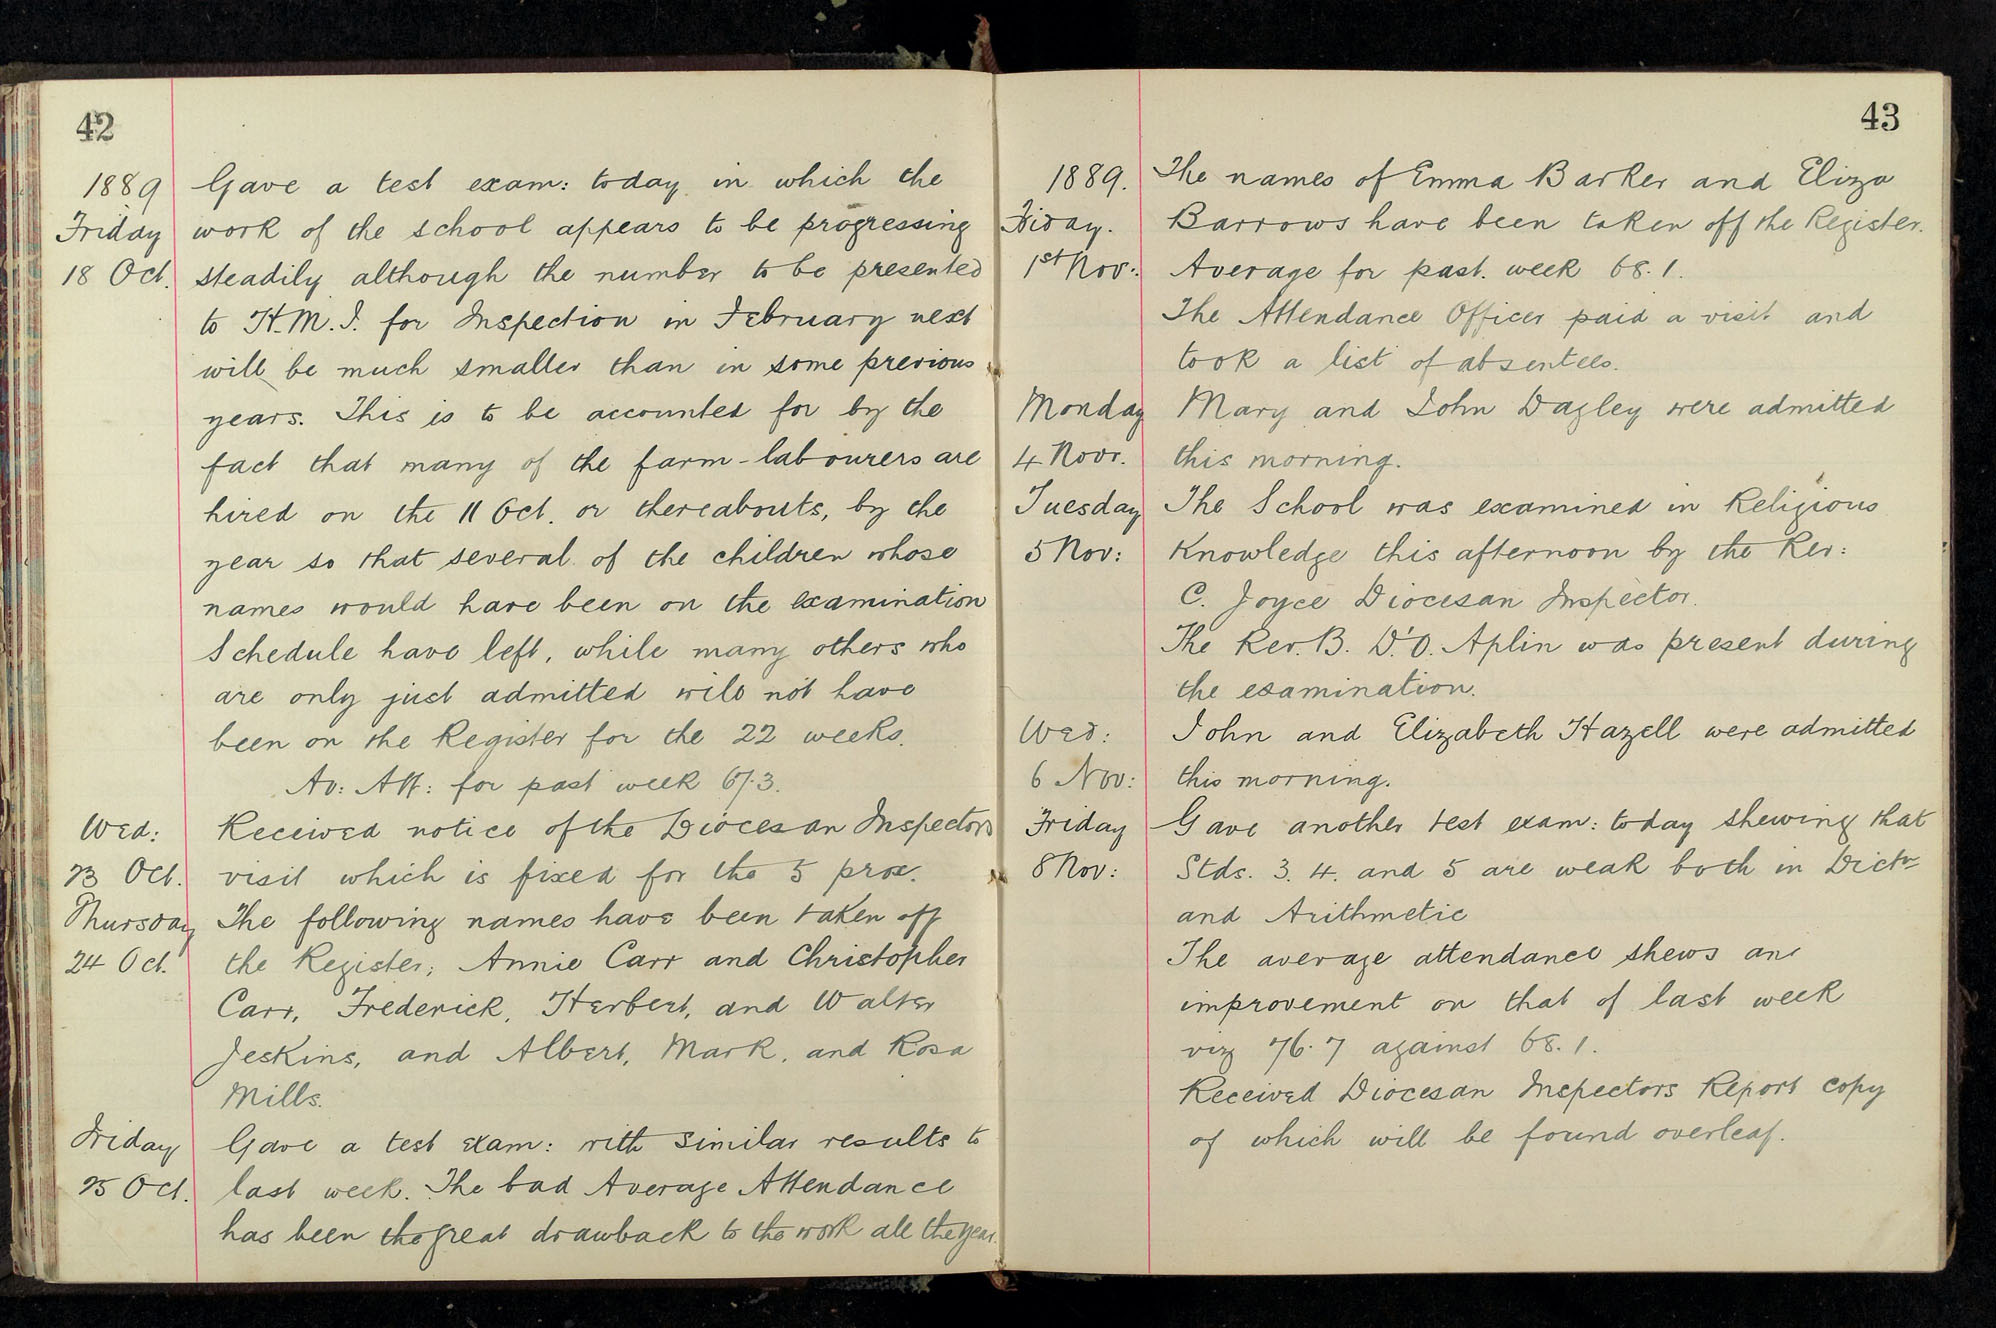 42
1889 Gave a test exam: today in which the
Friday work of the school appears to be progressing
18 Oct. steadily although the number to be presented
to H.M.I. for Inspection in February next
will be much smaller than in some previous
years. This is to be accounted for by the
fact that many of the farm-labourers are
hired on the 11 Oct. or thereabouts, by the
year so that several of the children whose
names would have been on the examination
Schedule have left, while many others who
are only just admitted will not have
been on the Register for the 22 weeks.
Av: Att: for past week 67.3.
Wed: Received notice of the Diocesan Inspectors
23 Oct. visit which is fixed for the 5 prox.
Thursday The following names have been taken off
24 Oct. the Register; Annie Carr and Christopher
Carr, Frederick, Herbert, and Walter
Jeskins, and Albert, Mark, and Rosa
Mills.
Friday Gave a test exam: with similar results to
25 Oct. last week. The bad Average Attendance
has been the great drawback to the work all the year.
43
1889. The names of Emma Barker and Eliza
Friday. Barrows have been taken off the Register.
1st Nov: Average for past week 68.1.
The Attendance Officer paid a visit and
took a list of absentees.
Monday Mary and John Dagley were admitted
4 Novr. this morning.
Tuesday The School was examined in Religious
5 Nov: Knowledge this afternoon by the Rev:
C. Joyce Diocesan Inspector.
The Rev. B. D'O. Aplin was present during
the examination.
Wed: John and Elizabeth Hazell were admitted
6 Nov: this morning.
Friday Gave another test exam: today shewing that
8 Nov: Stds. 3. 4. and 5 are weak both in Dictn
and Arithmetic
The average attendance shews an
improvement on that of last week
viz 76.7 against 68.1.
Received Diocesan Inspectors Report copy
of which will be found overleaf.